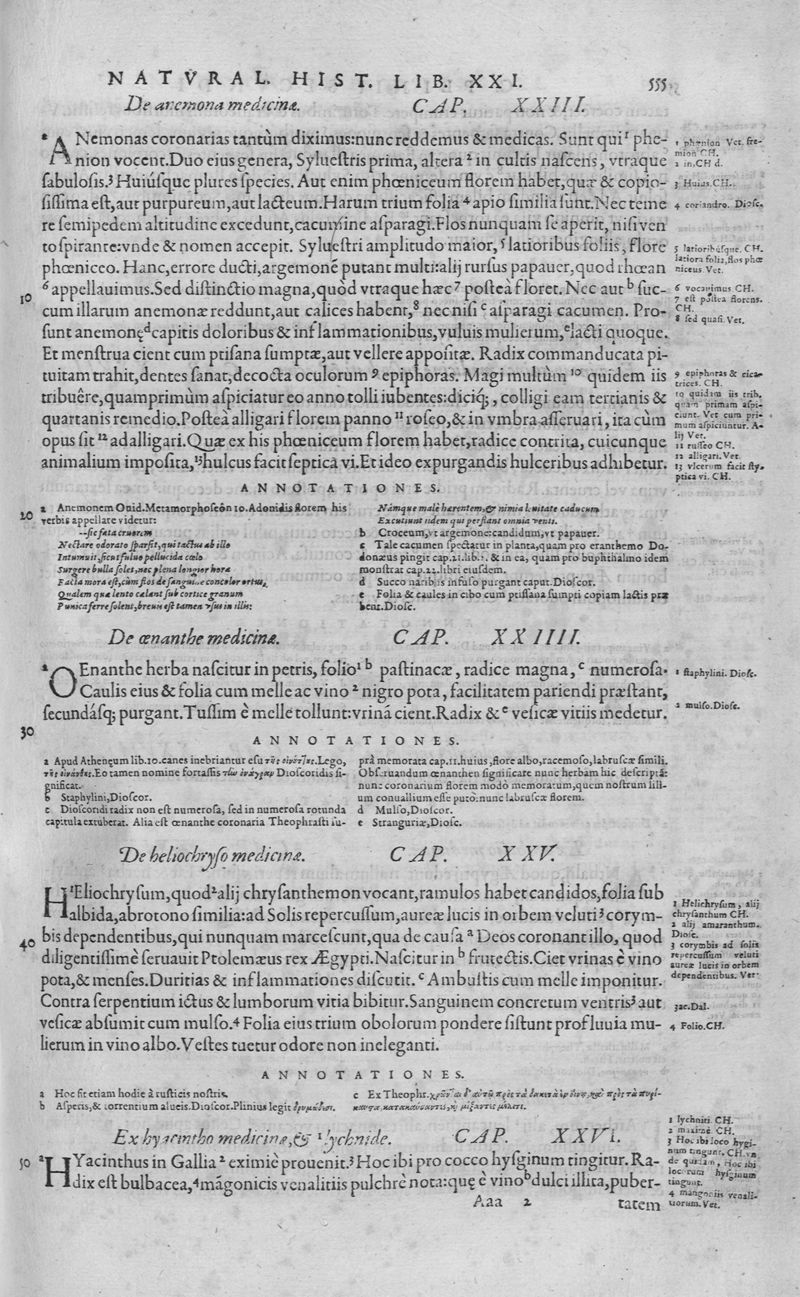 NATVRAL. HIST. LIB. XXI. 555
De anemona medicina. CAP. XXIII.
ª ANemonas coronarias tantùm diximus:nunc reddemus & medicas. Sunt qui¹ phe-
nion vocent.Duo eius genera, Sylueſtris prima, altera ² in cultis naſcens, vtraque
ſabuloſis.³ Huiúſque plures ſpecies. Aut enim phœniceum florem habet,quæ & copio-
ſiſſima eſt,aut purpureum,aut lacteum.Harum trium folia ⁴ apio ſimilia ſunt.Nec teme
re ſemipedem altitudine excedunt,cacumine aſparagi.Flos nunquam ſe aperit, niſi ven
to ſpirante:vnde & nomen accepit. Sylueſtri amplitudo maior, ⁵ latioribus foliis, flore
phœniceo. Hanc,errore ducti,argemonê putant multi:alij rurſus papauer,quod rhœan
⁶ appellauimus.Sed diſtinctio magna,quòd vtraque hæc ⁷ poſtea floret. Nec aut ᵇ ſuc-
10
cum illarum anemonæ reddunt,aut calices habent,⁸ nec niſi ᶜ aſparagi cacumen. Pro-
ſunt anemonę ᵈ capitis doloribus & inflammationibus,vuluis mulierum,ᵉ lacti quoque.
Et menſtrua cient cum ptiſana ſumptæ,aut vellere appoſitæ. Radix commanducata pi-
tuitam trahit,dentes ſanat,decocta oculorum ⁹ epiphoras. Magi multùm ¹⁰ quidem iis
tribuêre,quamprimùm aſpiciatur eo anno tolli iubentes:diciq; , colligi eam tertianis &
quartanis remedio.Poſtea alligari florem panno ¹¹ roſeo,& in vmbra aſſeruari, ita cùm
opus ſit ¹² adalligari.Quæ ex his phœniceum florem habet,radice contrita, cuicunque
animalium impoſita,¹³hulcus facit ſeptica vi.Et ideo expurgandis hulceribus adhibetur.
1 phenion Vet. fre-
mion CH.
2 in.CH d.
3 Huius.CH.
4 coriandro. Dioſc.
5 latioribúſque. CH.
latiora folia,flos phœ
niceus Vet.
6 vocauimus CH.
7 eſt poſtea florens.
CH.
8 ſed quaſi.Vet.
9 epiphoras & cica-
trices. CH.
10 quidam iis trib.
quam primam aſpi-
ciunt. Vet cum pri-
mum aſpiciuntur. A-
lij Vet.
11 ruſſeo CH.
12 alligari.Vet.
13 vlcerum facit ſty-
ptica vi. CH.
ANNOTATIONES.
20
a Anemonem Ouid.Metamorphoſeôn 10.Adonidis florem his
verbis appellare videtur:
--ſic fata cruorem
Nectare odorato ſparſit,qui tactus ab illo
Intumuit,ſicut fuluo pellucida cœlo
Surgere bulla ſolet,nec plena longior hora
Facta mora eſt,cùm flos de ſanguine concolor ortus,
Qualem quæ lento celant ſub cortice granum
Punica ferre ſolent,breuis eſt tamen vſus in illis:
Námque malè hærentem,& nimia leuitate caducum
Excutiunt iidem qui perflant omnia venti.
b Croceum,vt argemone:candidum,vt papauer.
c Tale cacumen ſpectatur in planta,quam pro eranthemo Do-
donæus pingit cap.21.lib.2. & in ea, quam pro buphthalmo idem
monſtrat cap.22.libri eiuſdem.
d Succo naribus infuſo purgant caput.Dioſcor.
e Folia & caules in cibo cum ptiſſana ſumpti copiam lactis præ
bent.Dioſc.
De œnanthe medicina. CAP. XXIIII.
ª OEnanthe herba naſcitur in petris, folio¹ ᵇ paſtinacæ, radice magna, ᶜ numeroſa.
Caulis eius & folia cum melle ac vino ² nigro pota, facilitatem pariendi præſtant,
ſecundáſq; purgant.Tuſſim è melle tollunt:vrinã cient.Radix & ᵉ veſicæ vitiis medetur.
1 ſtaphylini. Dioſc.
2 mulſo.Dioſc.
30
ANNOTATIONES.
a Apud Athenęum lib.10.canes inebriantur eſu τῆς οἰνούττης.Lego,
τῆς οἰνάνθης.Eo tamen nomine fortaſſis τὴν ὀνάγραν Dioſcoridis ſi-
gnificat.
b Staphylini,Dioſcor.
c Dioſcoridi radix non eſt numeroſa, ſed in numeroſa rotunda
capitula extuberat. Alia eſt œnanthe coronaria Theophraſti ſu-
prà memorata cap.11.huius ,flore albo,racemoſo,labruſcæ ſimili.
Obſeruandum œnanthen ſignificare nunc herbam hic deſcriptã:
nunc coronarium florem modò memoratum,quem noſtrum lili-
um conuallium eſſe puto:nunc labruſcæ florem.
d Mulſo,Dioſcor.
e Stranguriæ,Dioſc.
De heliochryſo medicina. CAP. XXV.
HEliochryſum,quod²alij chryſanthemon vocant,ramulos habet candidos,folia ſub
albida,abrotono ſimilia:ad Solis repercuſſum,aureæ lucis in orbem veluti ³ corym-
40
bis dependentibus,qui nunquam marceſcunt,qua de cauſa ᵃ Deos coronant illo, quod
diligentiſſimè ſeruauit Ptolemæus rex Ægypti.Naſcitur in ᵇ frutectis.Ciet vrinas è vino
pota,& menſes.Duritias & inflammationes diſcutit. ᶜ Ambuſtis cum melle imponitur.
Contra ſerpentium ictus & lumborum vitia bibitur.Sanguinem concretum ventris³ aut
veſicæ abſumit cum mulſo.⁴ Folia eius trium obolorum pondere ſiſtunt profluuia mu-
lierum in vino albo.Veſtes tuetur odore non ineleganti.
1 Helichryſum, alij
chryſanthum CH.
2 alij amaranthum.
Dioſc.
3 corymbis ad ſolis
repercuſſum veluti
aureæ lucis in orbem
dependentibus. Vet.
3ac.Dal.
4 Folio.CH.
ANNOTATIONES.
a Hoc fit etiam hodie à ruſticis noſtris.
b Aſperis,& torrentium alueis.Dioſcor.Plinius legit δρυμώδεσι.
c Ex Theophr.
Ex hyacintho medicina,& ¹ lychnide. CAP. XXVI.
50
ª HYacinthus in Gallia ² eximiè prouenit.³ Hoc ibi pro cocco hyſginum tingitur. Ra-
dix eſt bulbacea,⁴mãgonicis venalitiis pulchrè nota:quę è vino ᵇ dulci illita,puber-
1 lychniti. CH.
2 maximè. CH.
3 Hoc ibi loco hygi-
num tingunt. CH.vn
de quidam, Hoc ibi
locorum hyſginum
tingunt.
4 mangoniis venali-
tiorum.Vet.
Aaa 2 tatem